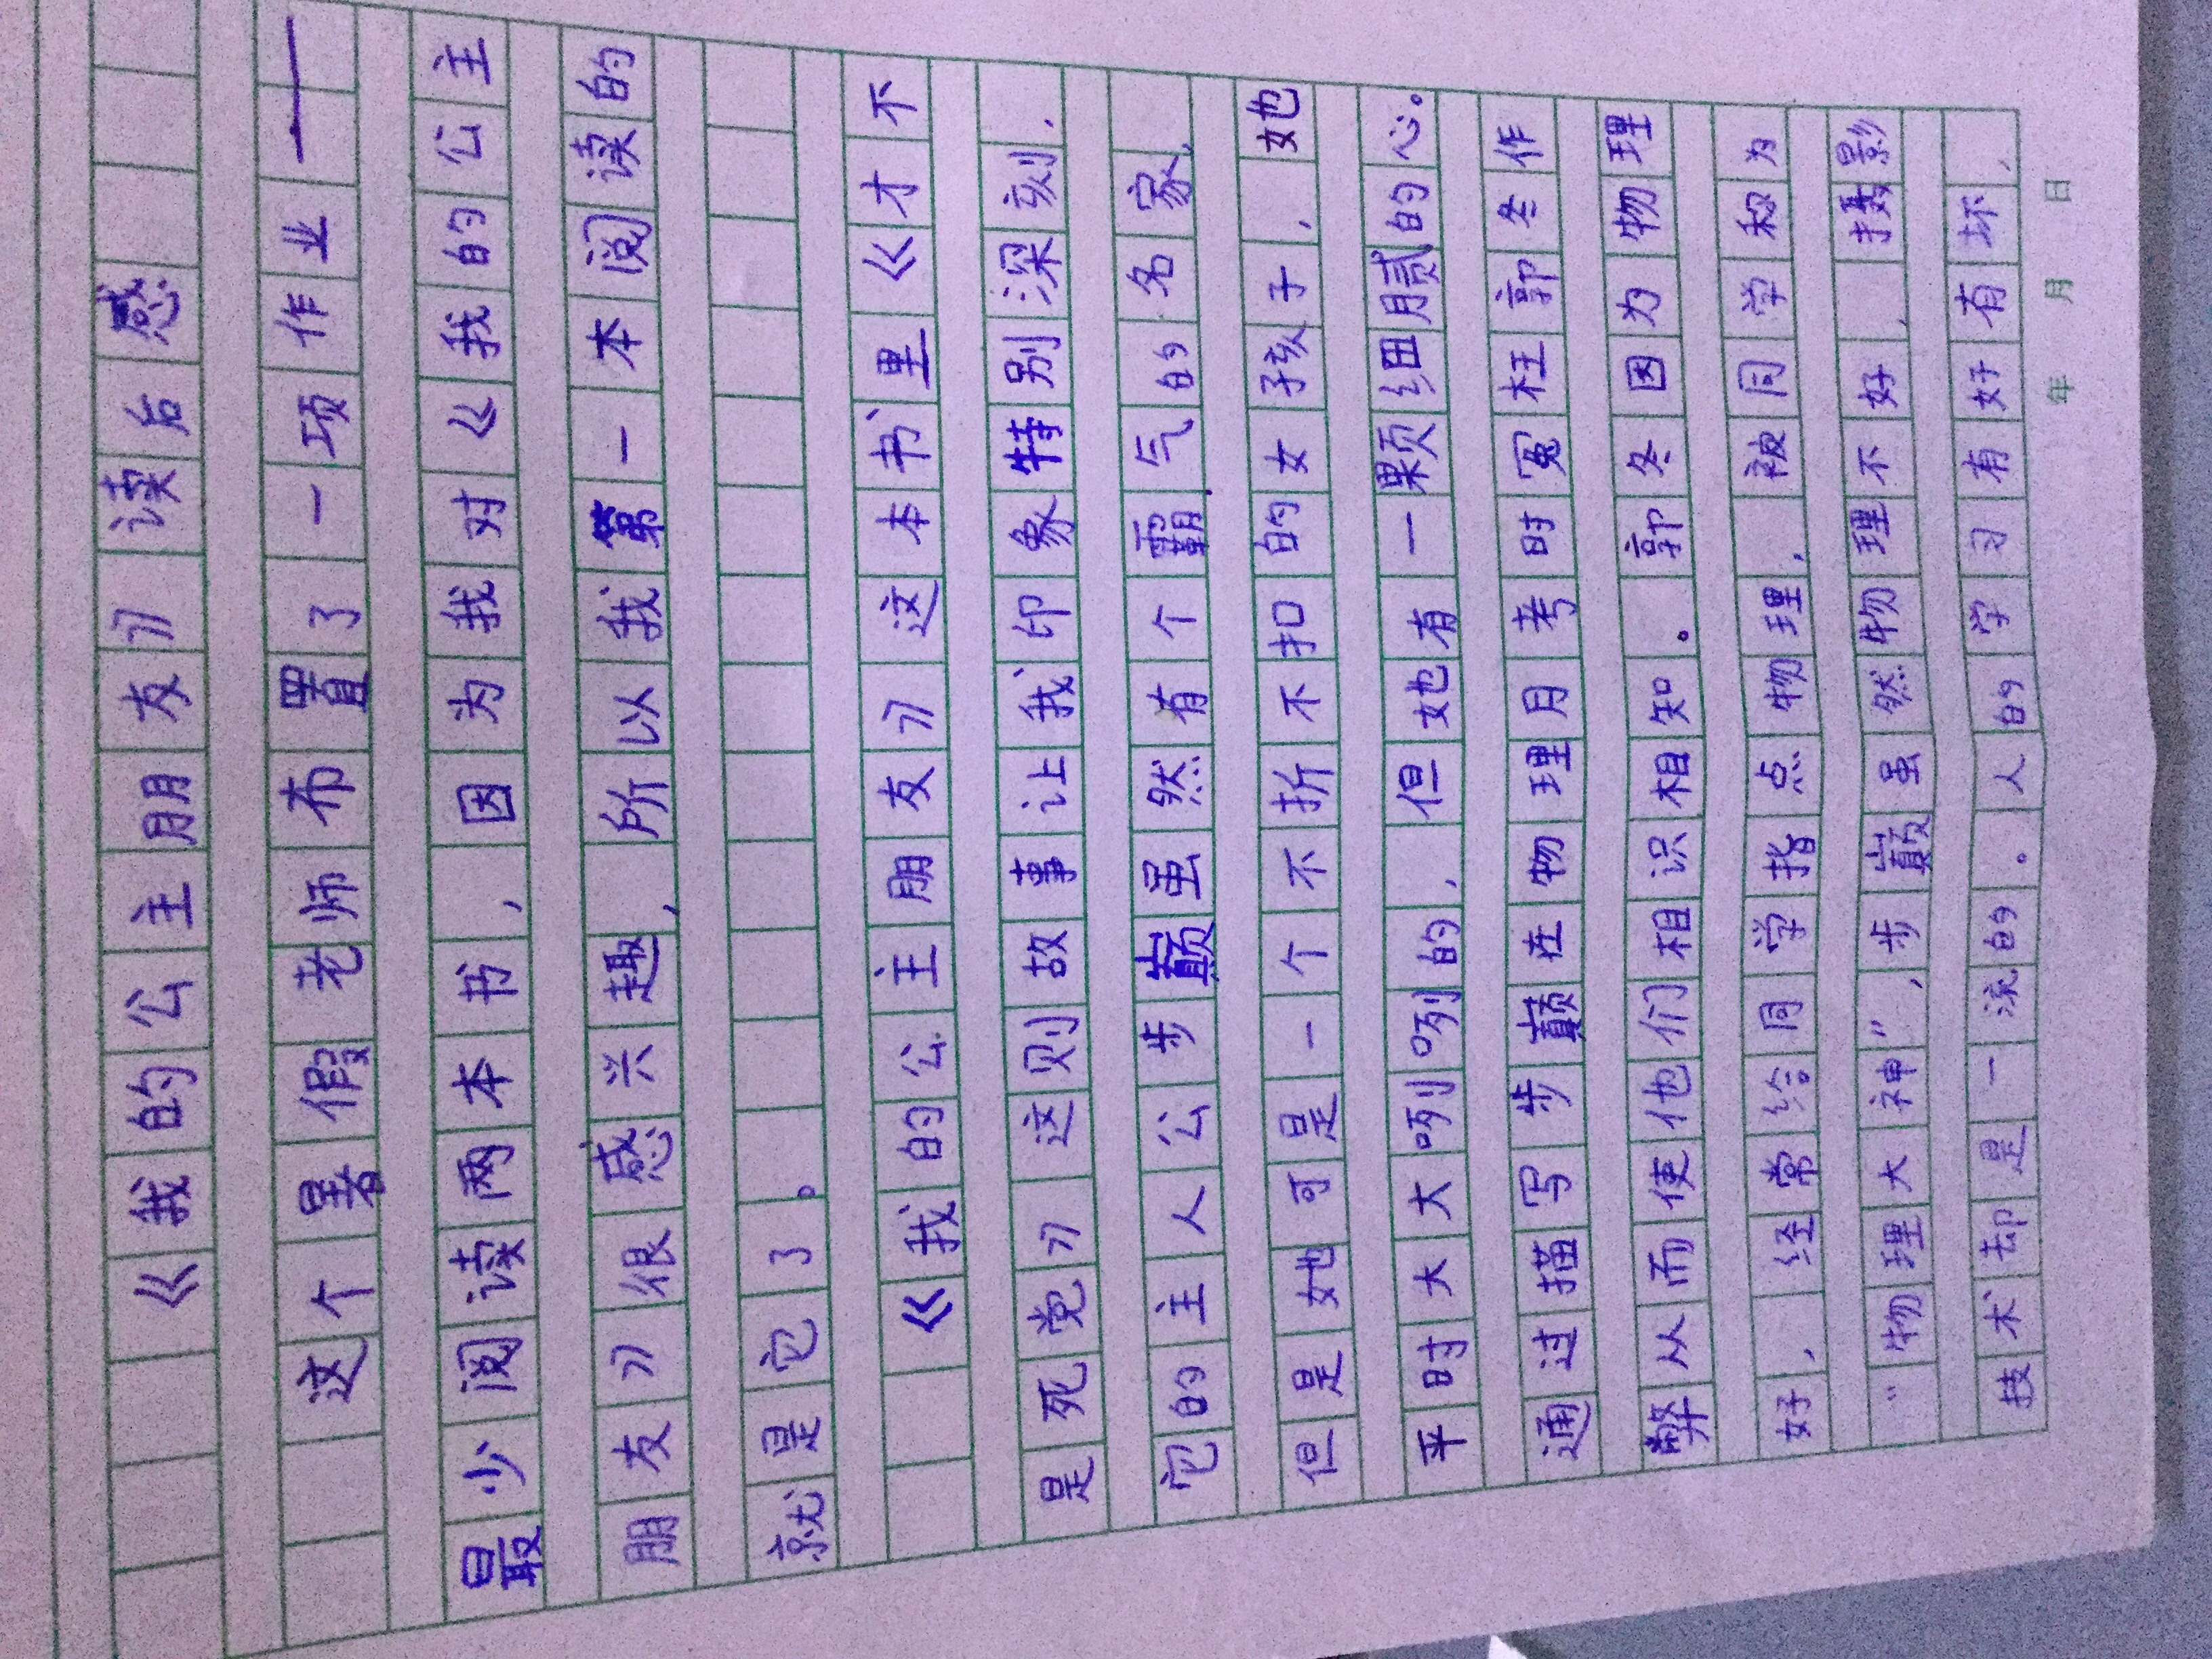 《我的公主朋友》读后感
这个暑假老师布置了一项作业——
最少阅读两本书,因为我对《我的公主
朋友》很感兴趣,所以我第一本阅读的
就是它了。
《我的公主朋友》这本书里《才不
是死党》这则故事让我印象特别深刻,
它的主人公步巅虽然有个霸气的名家,
但是她可是一个不折不扣的女孩子,她
平时大大咧咧的,但她有一颗细腻的心。
通过描写步巅在物理月考时冤枉郭冬作
弊从而使他们相识相知。郭冬因为物理
好,经常给同学指点物理,被同学称为
“物理大神”,步巅虽然物理不好,摄影
技术却是一流的。人的学习有好有坏,
年 月 日